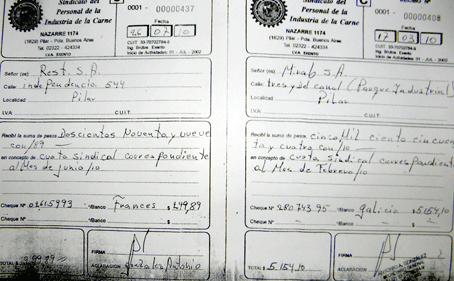 Sindicato del
Personal de la
Industria de la Carne
NAZARRE 1174
(1629) Pilar - Pcia. Buenos Aires
Tel. 02322 - 424334
I.V.A. EXENTO
C
0001 - 00000437
Fecha
26 07 10
Ing. Brutos Exento
Inicio de Actividades: 01 - JUL - 2002
Señor (es) Rest. S.A.
Calle independencia 544
Localidad Pilar
I.V.A. C.U.I.T.
Recibí la suma de pesos Doscientos Noventa y nueve
con/89
en concepto de cuota sindical correspondiente
al Mes de junio/10
Cheque Nº 01615993 Banco Frances
Cheque Nº Banco $
FIRMA
ACLARACIÓN
Sindicato del
Personal de la
Industria de la Carne
NAZARRE 1174
(1629) Pilar - Pcia. Buenos Aires
Tel. 02322 - 424334
I.V.A. EXENTO
C
0001 - 00000408
Fecha
17 03 10
Ing. Brutos Exento
Inicio de Actividades: 01 - JUL - 2002
Señor (es) S.A.
Calle tres y del canal (Parque Industrial)
Localidad Pilar
I.V.A. C.U.I.T.
Recibí la suma de pesos cinco Mil ciento cincuen
ta y cuatro con/10
en concepto de cuota sindical correspondiente
al Mes de Febrero/10
Cheque Nº 280.743.95 Banco galicia $ 5.154,10
Cheque Nº Banco $
FIRMA
ACLARACIÓN
TOTAL $ 5.154,10